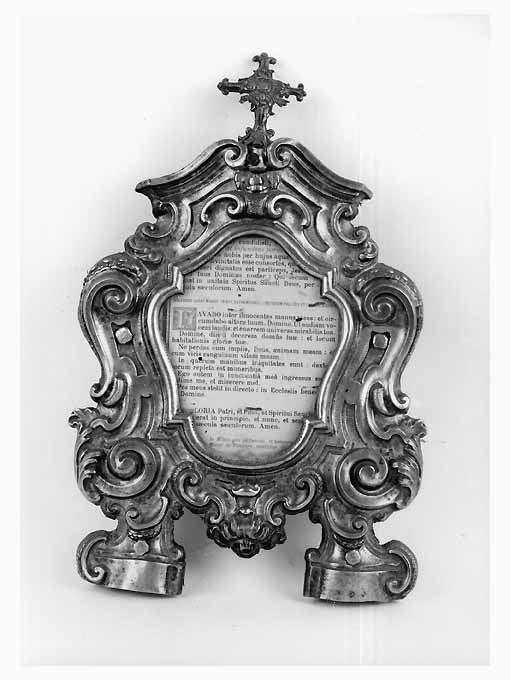 condidisti,
et reformasti: da
nobis per hujus aquæ
divinitatis esse consortes, qu
fieri dignatus est particeps, Jesu
tuus Dominus noster: Qui tecum
in unitate Spiritus Sancti Deus, per
sæculorum. Amen.
LAVABO inter innocentes manus meas: et cir
cumdabo altare tuum, Domine. Ut audiam vo
cem laudis: et enarrem universa mirabilia tua.
Domine, dilexi decorem domûs tuæ: et locum
habitationis gloriæ tuæ.
Ne perdas cum impiis, Deus, animam meam: e
cum viris sanguinum vitam meam.
In quorum manibus iniquitates sunt: dexte
orum repleta est muneribus.
Ego autem in innocentiâ meâ ingressus su
dime me, et miserere mei.
Pes meus stetit in directo: in Ecclesiis bene
Domine.
GLORIA Patri, et Filio, et Spiritui Sanc
erat in principio, et nunc, et sem
sæcula sæculorum. Amen.